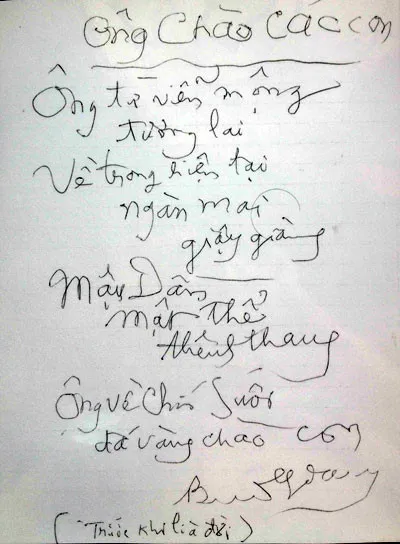 Ông Chào Các con
Ông từ viễn mộng
tương lai
Về trong hiện tại
ngàn mai
giậy giàng
Mậu Dần
mật thể
thênh thang
Ông về Chín Suối
đá vàng chao con
Bùi Giáng
(Trước khi lìa đời)